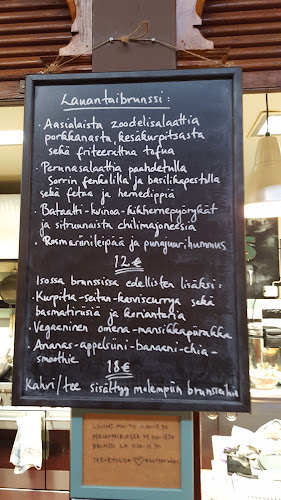 Lauantaibrunssi:
· Aasialaista zoodelisalaattia
porkkanasta, kesäkurpitsasta
sekä friteerattua tofua
· Perunasalaattia paahdetulla
fenkolilla ja basilikapestulla
sekä fetaa ja hernedippiä
· Bataatti-kvinoa-kikhernepyörykät
ja sitruunaista chilimajoneesia
· Rosmariinileipää ja punajuurihummus
12 €
Isossa brunssissa edellisten lisäksi:
· Kurpitsa-seitan-kasviscurrya sekä
basmatiriisiä ja korianteria
· Vegaaninen omena-mansikkapiirakka
· Ananas-appelsiini-banaani-chia-
smoothie
18 €
Kahvi/tee sisältyy molempiin brunsseihin
LOUNAS MA-TO 11.00-17.30
BRUNSSI LA
TERVETULOA